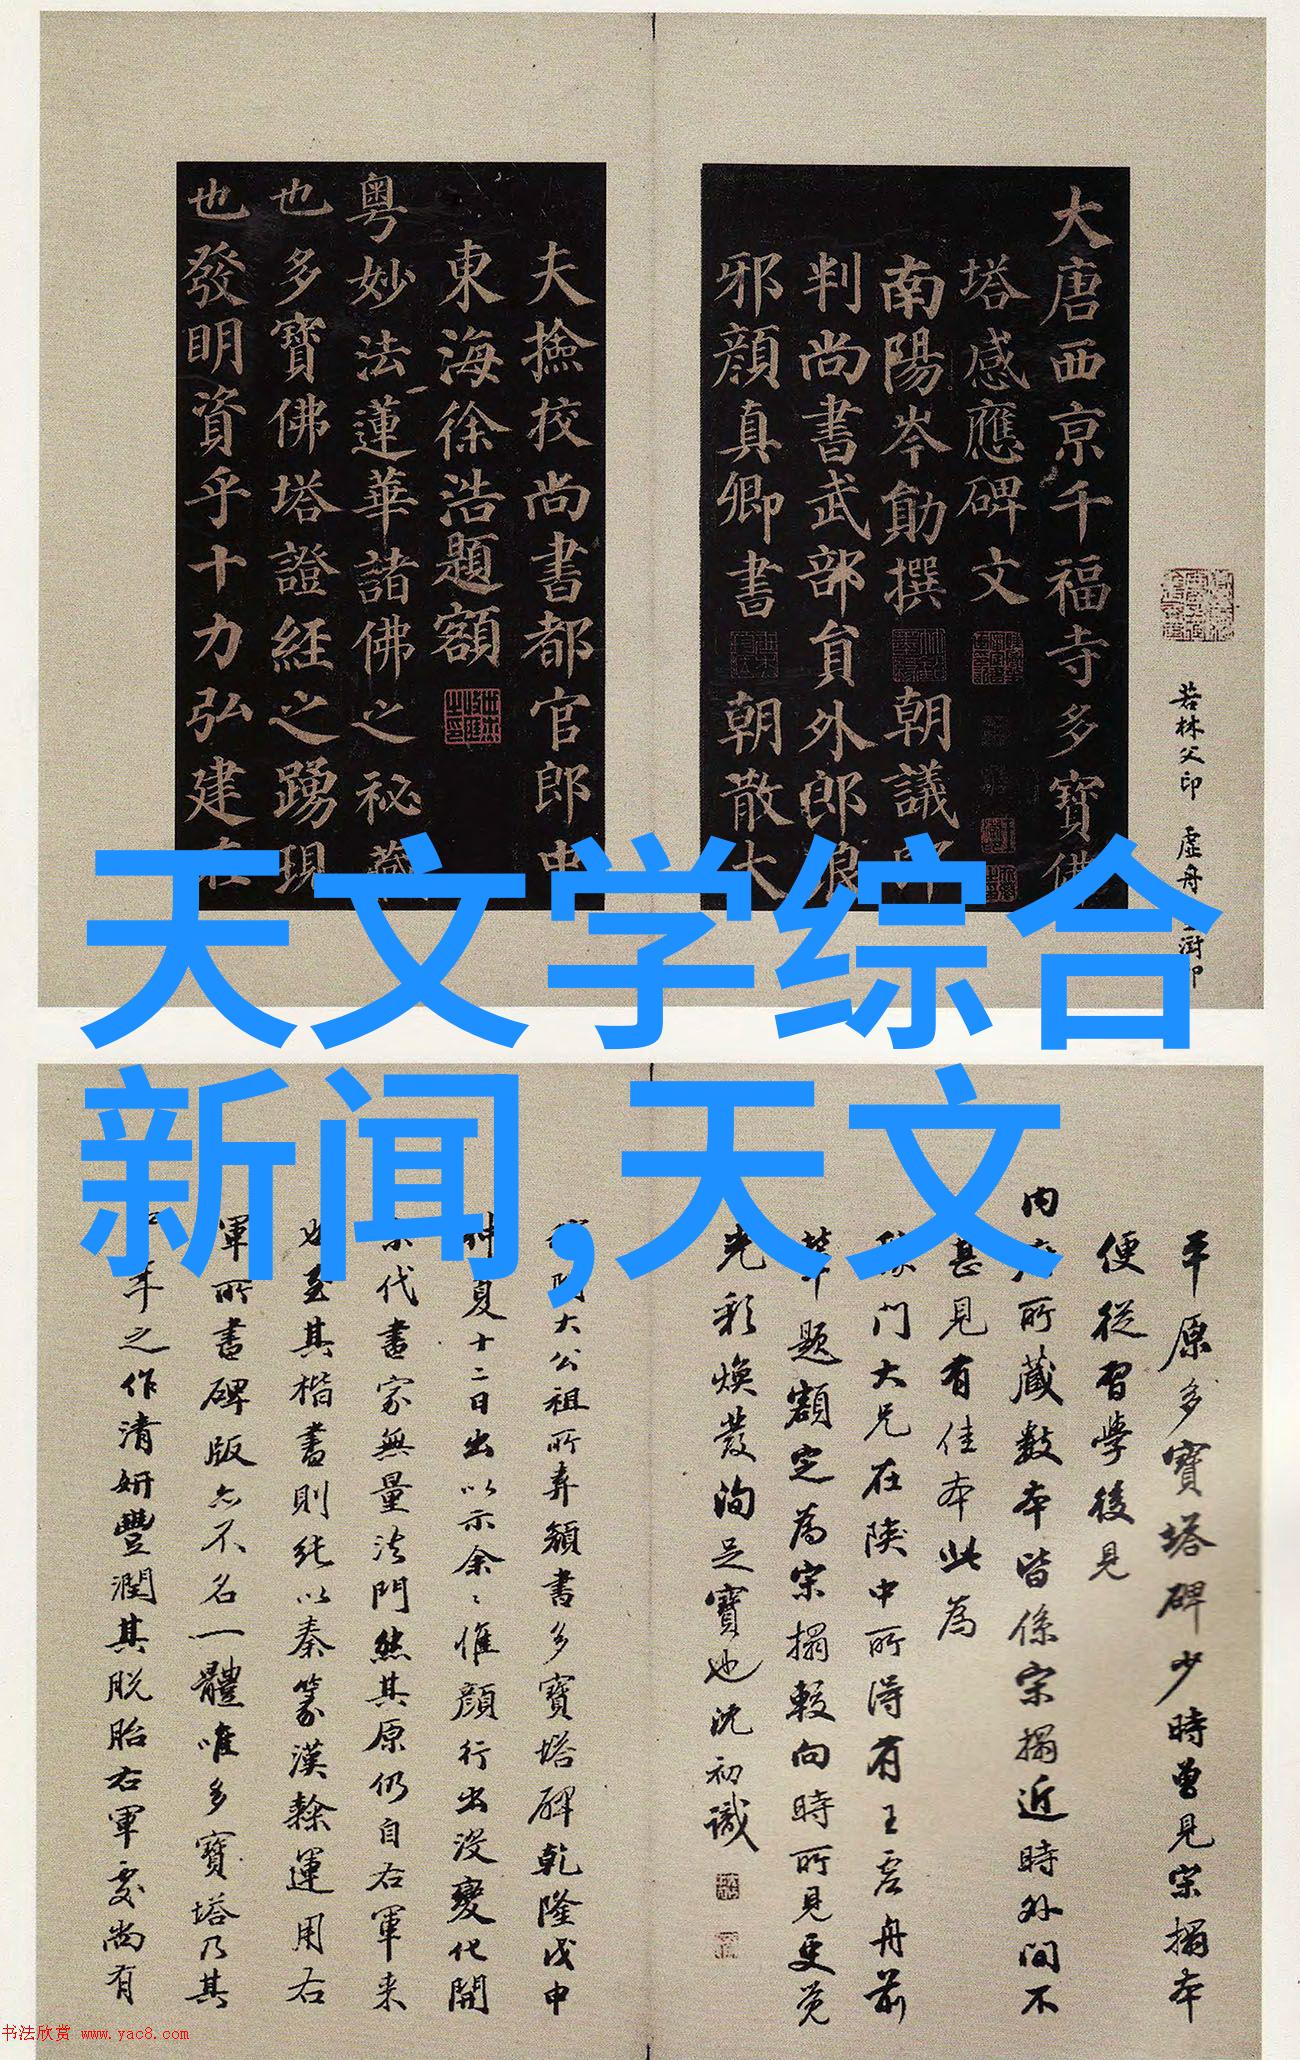 大唐西京千福寺多寶佛
塔感應碑文
南陽岑勛撰 朝議郎
判尚書武部員外郎琅
邪顏真卿書 朝散大
夫撿挍尚書都官郎中
東海徐浩題額
粵妙法蓮華諸佛之秘藏
也多寶佛塔證經之踴現
也發明資乎十力弘建在
若林父印 虛舟 澍印
天文学综合
新闻,天文
平原多寶塔碑少時曾見宋搨本
便從習學後見
内府所藏數本皆係宋搨近時外間不
甚見有佳本此為
門大兄在陝中所得有王虛舟前
輩題額定為宋搨較向時所見更覺
光彩煥發洵足寶也沈初識
大公祖所弆顏書多寶塔碑乾隆戊申
仲夏十二日出以示余〻惟顏行出没變化開
代書家無量法門然其原仍自右軍来
其楷書則純以秦篆漢隸運用右
軍所書碑版亦不名一體唯多寶塔乃其
年之作清妍豐潤其脱胎右軍處尚有
书法欣赏 www.yac8.com